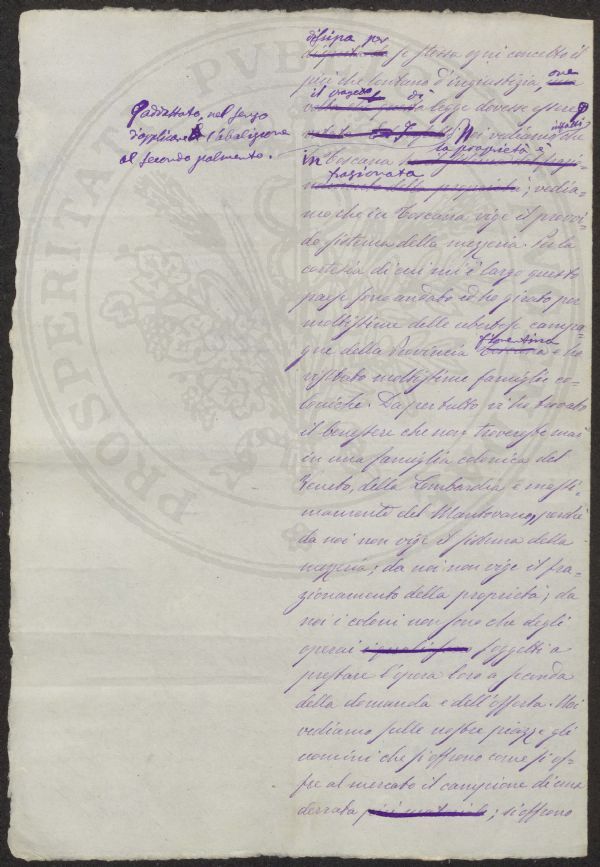 dissipa per
se stesso ogni concetto il
più che lontano d'ingiustizia, ove
il progetto di
legge dovesse essere
Noi vediamo infatti che
in Toscana la proprietà è
frazionata; vedia-
mo che in Toscana vige il provvi-
do sistema della mezzeria. Per la
cortesia di cui mi è largo questo
paese sono andato ed ho girato per
moltissime delle ubertose campa-
gne della Provincia fiorentina e ho
visitato moltissime famiglie co-
loniche. Dapertutto vi ho trovato
il benessere che non troverete mai
in una famiglia colonica del
Veneto, della Lombardia e massi-
mamente del Mantovano, perché
da noi non vige il sistema della
mezzeria; da noi non vige il fra-
zionamento della proprietà; da
noi i coloni non sono che degli
operai soggetti a
prestare l'opera loro a seconda
della domanda e dell'offerta. Noi
vediamo sulle nostre piazze gli
uomini che si offrono come si of-
fre al mercato il campione di una
derrata; si offrono
adottato, nel senso
d'applicare l'abolizione
al secondo palmento.
PROSPERITA PVBLICAE